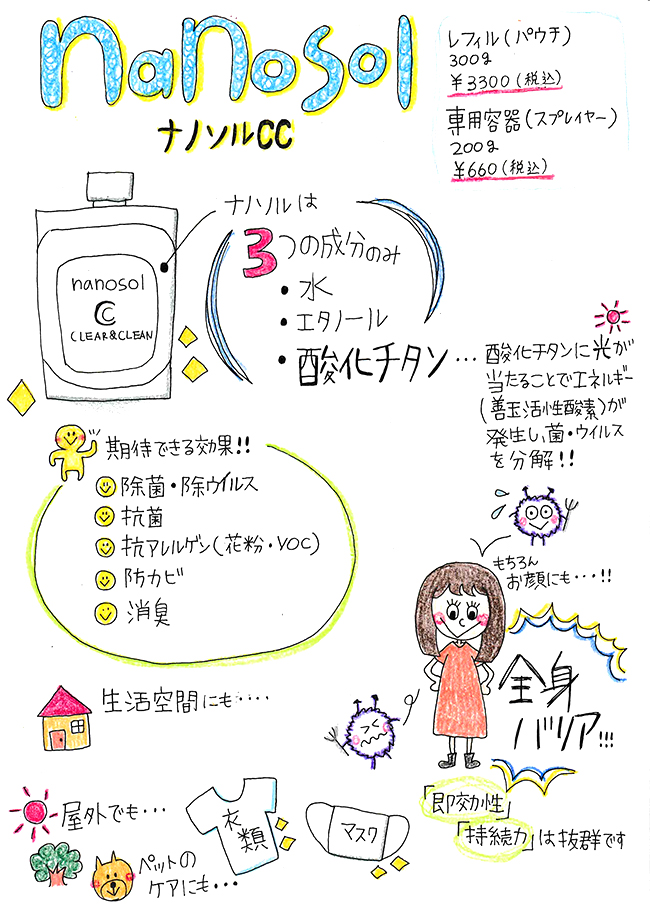 nanosol
ナノソルCC
レフィル(パウチ)
300g
¥3300(税込)
専用容器(スプレイヤー)
200g
¥660(税込)
nanosol
CC
CLEAR&CLEAN
ナノソルは
3つの成分のみ
・水
・エタノール
・酸化チタン…
酸化チタンに光が
当たることでエネルギー
(善玉活性酸素)が
発生し、菌・ウイルス
を分解!!
期待できる効果!!
除菌・除ウイルス
抗菌
抗アレルゲン(花粉・VOC)
防カビ
消臭
もちろん
お顔にも・・・!!
全身
バリア!!!
生活空間にも・・・・
屋外でも・・・
衣類
マスク
ペットの
ケアにも・・・
「即効性」
「持続力」は抜群です